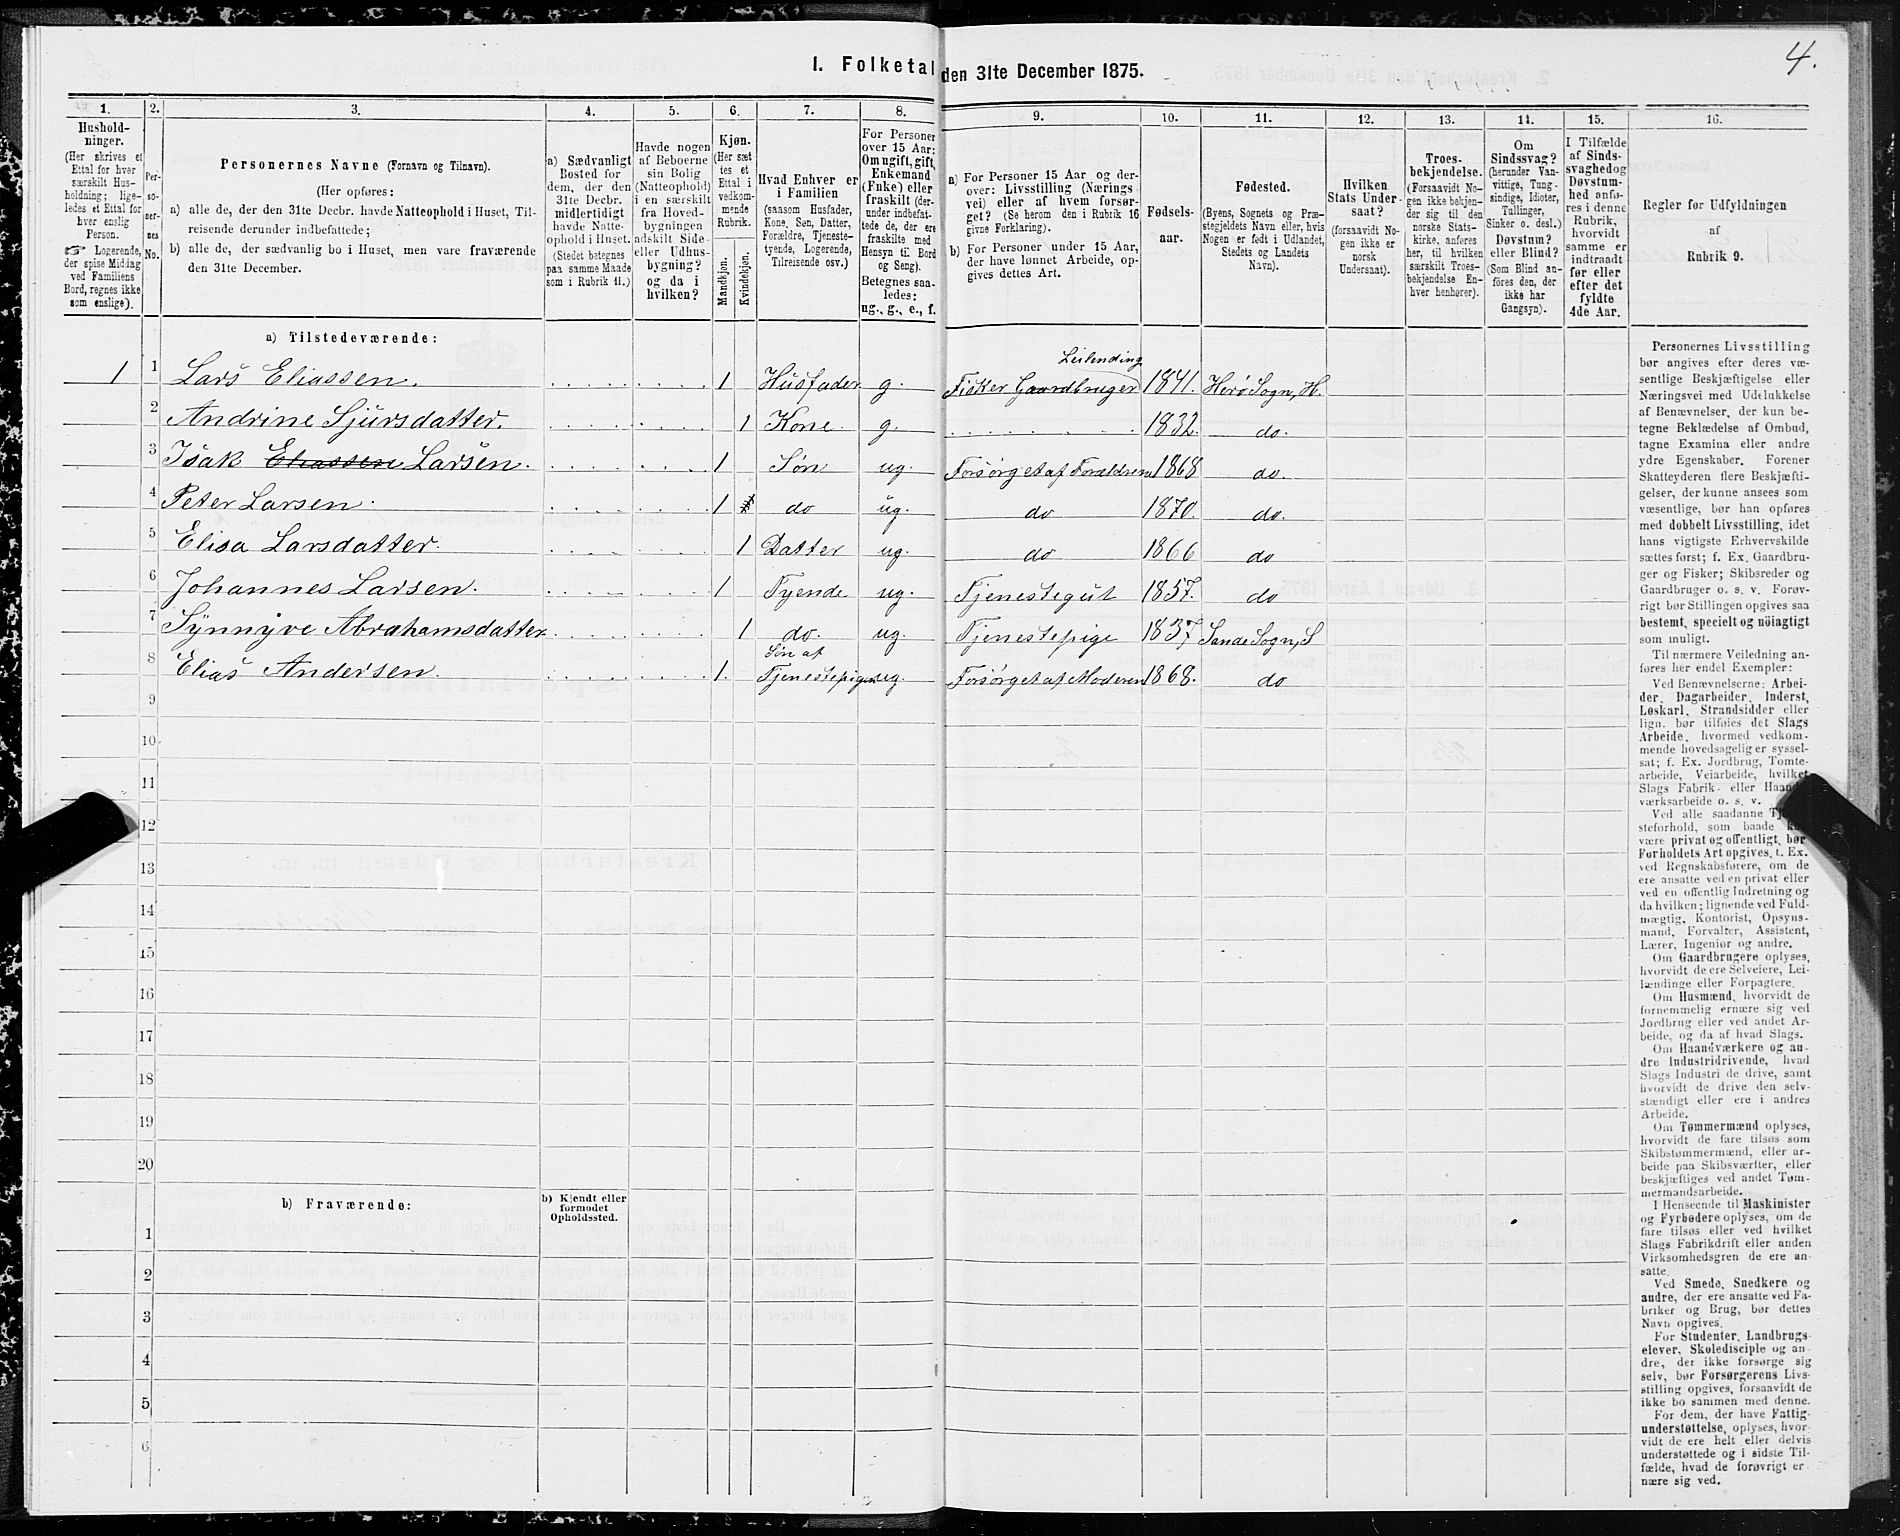 4.
I. Folketal den 31te December 1875.
1.
2.
3.
4.
5.
6.
7.
8.
9.
10.
11.
12.
13.
14.
15.
16.
Hushold-
ninger.
(Her skrives et
Ettal for hver
særskilt Hus-
holdning; lige-
ledes et Ettal for
hver enslig
Person.
☞ Logerende,
der spise Middag
ved Familiens
Bord, regnes ikke
som enslige).
Per-
so-
ner-
nes
No.
Personernes Navne (Fornavn og Tilnavn).
(Her opføres:
a) alle de, der den 31te Decbr. havde Natteophold i Huset, Til-
reisende derunder indbefattede;
b) alle de, der sædvanlig bo i Huset, men vare fraværende
den 31te December.
a) Sædvanligt
Bosted for
dem, der den
31te Decbr.
midlertidigt
havde Natte-
ophold i Huset.
(Stedet betegnes
paa samme Maade
som i Rubrik 11.)
Havde nogen
af Beboerne
sin Bolig
(Natteophold)
i en særskilt
fra Hoved-
bygningen
adskilt Side-
eller Udhus-
bygning?
og da i
hvilken?
Kjøn.
(Her sæt-
tes et
Ettal i
vedkom-
mende
Rubrik.
Mandkjøn.
Kvindekjøn.
Hvad Enhver er
i Familien
(saasom Husfader,
Kone, Søn, Datter,
Forældre, Tjeneste-
tyende, Logerende,
Tilreisende osv.)
For Personer
over 15 Aar:
Om ugift, gift,
Enkemand
(Enke) eller
fraskilt (der-
under indbefat-
tede de, der ere
fraskilte med
Hensyn til Bord
og Seng).
Betegnes saa-
ledes:
ug., g., e., f.
a) For Personer 15 Aar og der-
over: Livsstilling (Nærings-
vei) eller af hvem forsør-
get? (Se herom den i Rubrik 16
givne Forklaring).
b) For Personer under 15 Aar,
der have lønnet Arbeide, op-
gives dettes Art.
Fødsels-
aar.
Fødested.
(Byens, Sognets og Præ-
stegjeldets Navn eller, hvis
Nogen er født i Udlandet,
Stedets og Landets
Navn).
Hvilken
Stats Under-
saat?
(forsaavidt No-
gen ikke er
norsk
Undersaat).
Troes-
bekjendelse.
(Forsaavidt No-
gen ikke bekjen-
der sig til den
norske Stats-
kirke, anføres
her, til hvilken
særskilt Troes-
bekjendelse En-
hver henhører).
Om
Sindssvag?
(herunder Van-
vittige, Tung-
sindige, Idioter,
Tullinger,
Sinker o. desl.)
Døvstum?
eller Blind?
(Som Blind an-
føres den, der
ikke har
Gangsyn).
I Tilfælde
af Sinds-
svaghed og
Døvstum-
hed anfø-
res i denne
Rubrik,
hvorvidt
samme er
indtraadt
før eller
efter det
fyldte
4de Aar.
Regler for Udfyldningen
af
Rubrik 9.
a) Tilstedeværende:
Leilending
1 1 Lars Eliassen. 1 Husfader g. Fisker Gaardbruger 1841. Herø Sogn, H.
2 Andrine Sjursdatter. 1 Kone g. 1832 do.
3 Isak Eliassen Larsen. 1 Søn ug. Forsørget af Forældrene 1868 do.
4 Peter Larsen. 1 do ug. do 1870. do.
5 Elisa Larsdatter. 1 Datter ug. do 1866 do
6 Johannes Larsen. 1 Tyende ug. Tjenestegut 1857. do
7 Synnyve Abrahamsdatter 1 do. ug. Tjenestepige 1837 Sande Sogn, S
Søn af
8 Elias Andersen. 1. Tjenestepigen ug. Forsørget af Moderen 1868. do
9
10
11
12
13
14
15
16
17
18
19
20
b) Fraværende:
b) Kjendt eller
formodet
Opholdssted.
1
2
3
4
5
6
Personernes Livsstilling
bør angives efter deres væ-
sentlige Beskjæftigelse eller
Næringsvei med Udelukkelse
af Benævnelser, der kun be-
tegne Beklædelse af Ombud,
tagne Examina eller andre
ydre Egenskaber. Forener
Skatteyderen flere Beskjæfti-
gelser, der kunne ansees som
væsentlige, bør han opføres
med dobbelt Livsstilling, idet
hans vigtigste Erhvervskilde
sættes først; f. Ex. Gaardbru-
ger og Fisker; Skibsreder og
Gaardbruger o. s. v. Forøv-
rigt bør Stillingen opgives saa
bestemt, specielt og nøiagtigt
som muligt.
Til nærmere Veiledning an-
føres her endel Exempler:
Ved Benævnelserne: Arbei-
der, Dagarbeider, Inderst,
Løskarl, Strandsidder eller
lign. bør tilføies det Slags
Arbeide, hvormed vedkom-
mende hovedsagelig er syssel-
sat; f. Ex. Jordbrug, Tomte-
arbeide, Veiarbeide, hvilket
Slags Fabrik- eller Haand-
værksarbeide o. s. v.
Ved alle saadanne
steforhold, som baade
være privat og offentligt, bør
Forholdets Art opgives, f. Ex.
ved Regnskabsførere, om de
ere ansatte ved en privat eller
ved en offentlig Indretning og
da hvilken; lignende ved Fuld-
mægtig, Kontorist, Opsyns-
mand, Forvalter, Assistent,
Lærer, Ingeniør og andre.
Om Gaardbrugere oplyses,
hvorvidt de ere Selveiere, Lei-
lændinge eller Forpagtere.
Om Husmænd, hvorvidt de
fornemmelig ernære sig ved
Jordbrug eller ved andet Ar-
beide, og da af hvad Slags.
Om Haandværkere og an-
dre Industridrivende, hvad
Slags Industri de drive, samt
hvorvidt de drive den selv-
stændigt eller ere i andres
Arbeide.
Om Tømmermænd oplyses,
hvorvidt de fare tilsøs som
Skibstømmermænd, eller ar-
beide paa Skibsværfter, eller
beskjæftiges ved andet Tøm-
mermandsarbeide.
I Henseende til Maskinister
og Fyrbødere oplyses, om de
fare tilsøs eller ved hvilket
Slags Fabrikdrift eller anden
Virksomhedsgren de ere an-
satte.
Ved Smede, Snedkere og
andre, der ere ansatte ved Fa-
briker og Brug, bør dettes
Navn opgives.
For Studenter, Landbrugs-
elever, Skoledisciple og an-
dre, der ikke forsørge sig
selv, bør Forsørgerens Livs-
stilling opgives, forsaavidt de
ikke bo sammen med denne.
For dem, der have Fattig-
understøttelse, oplyses, hvor-
vidt de ere helt eller delvis
understøttede og i sidste Til-
fælde, hvad de forøvrigt er-
nære sig ved.